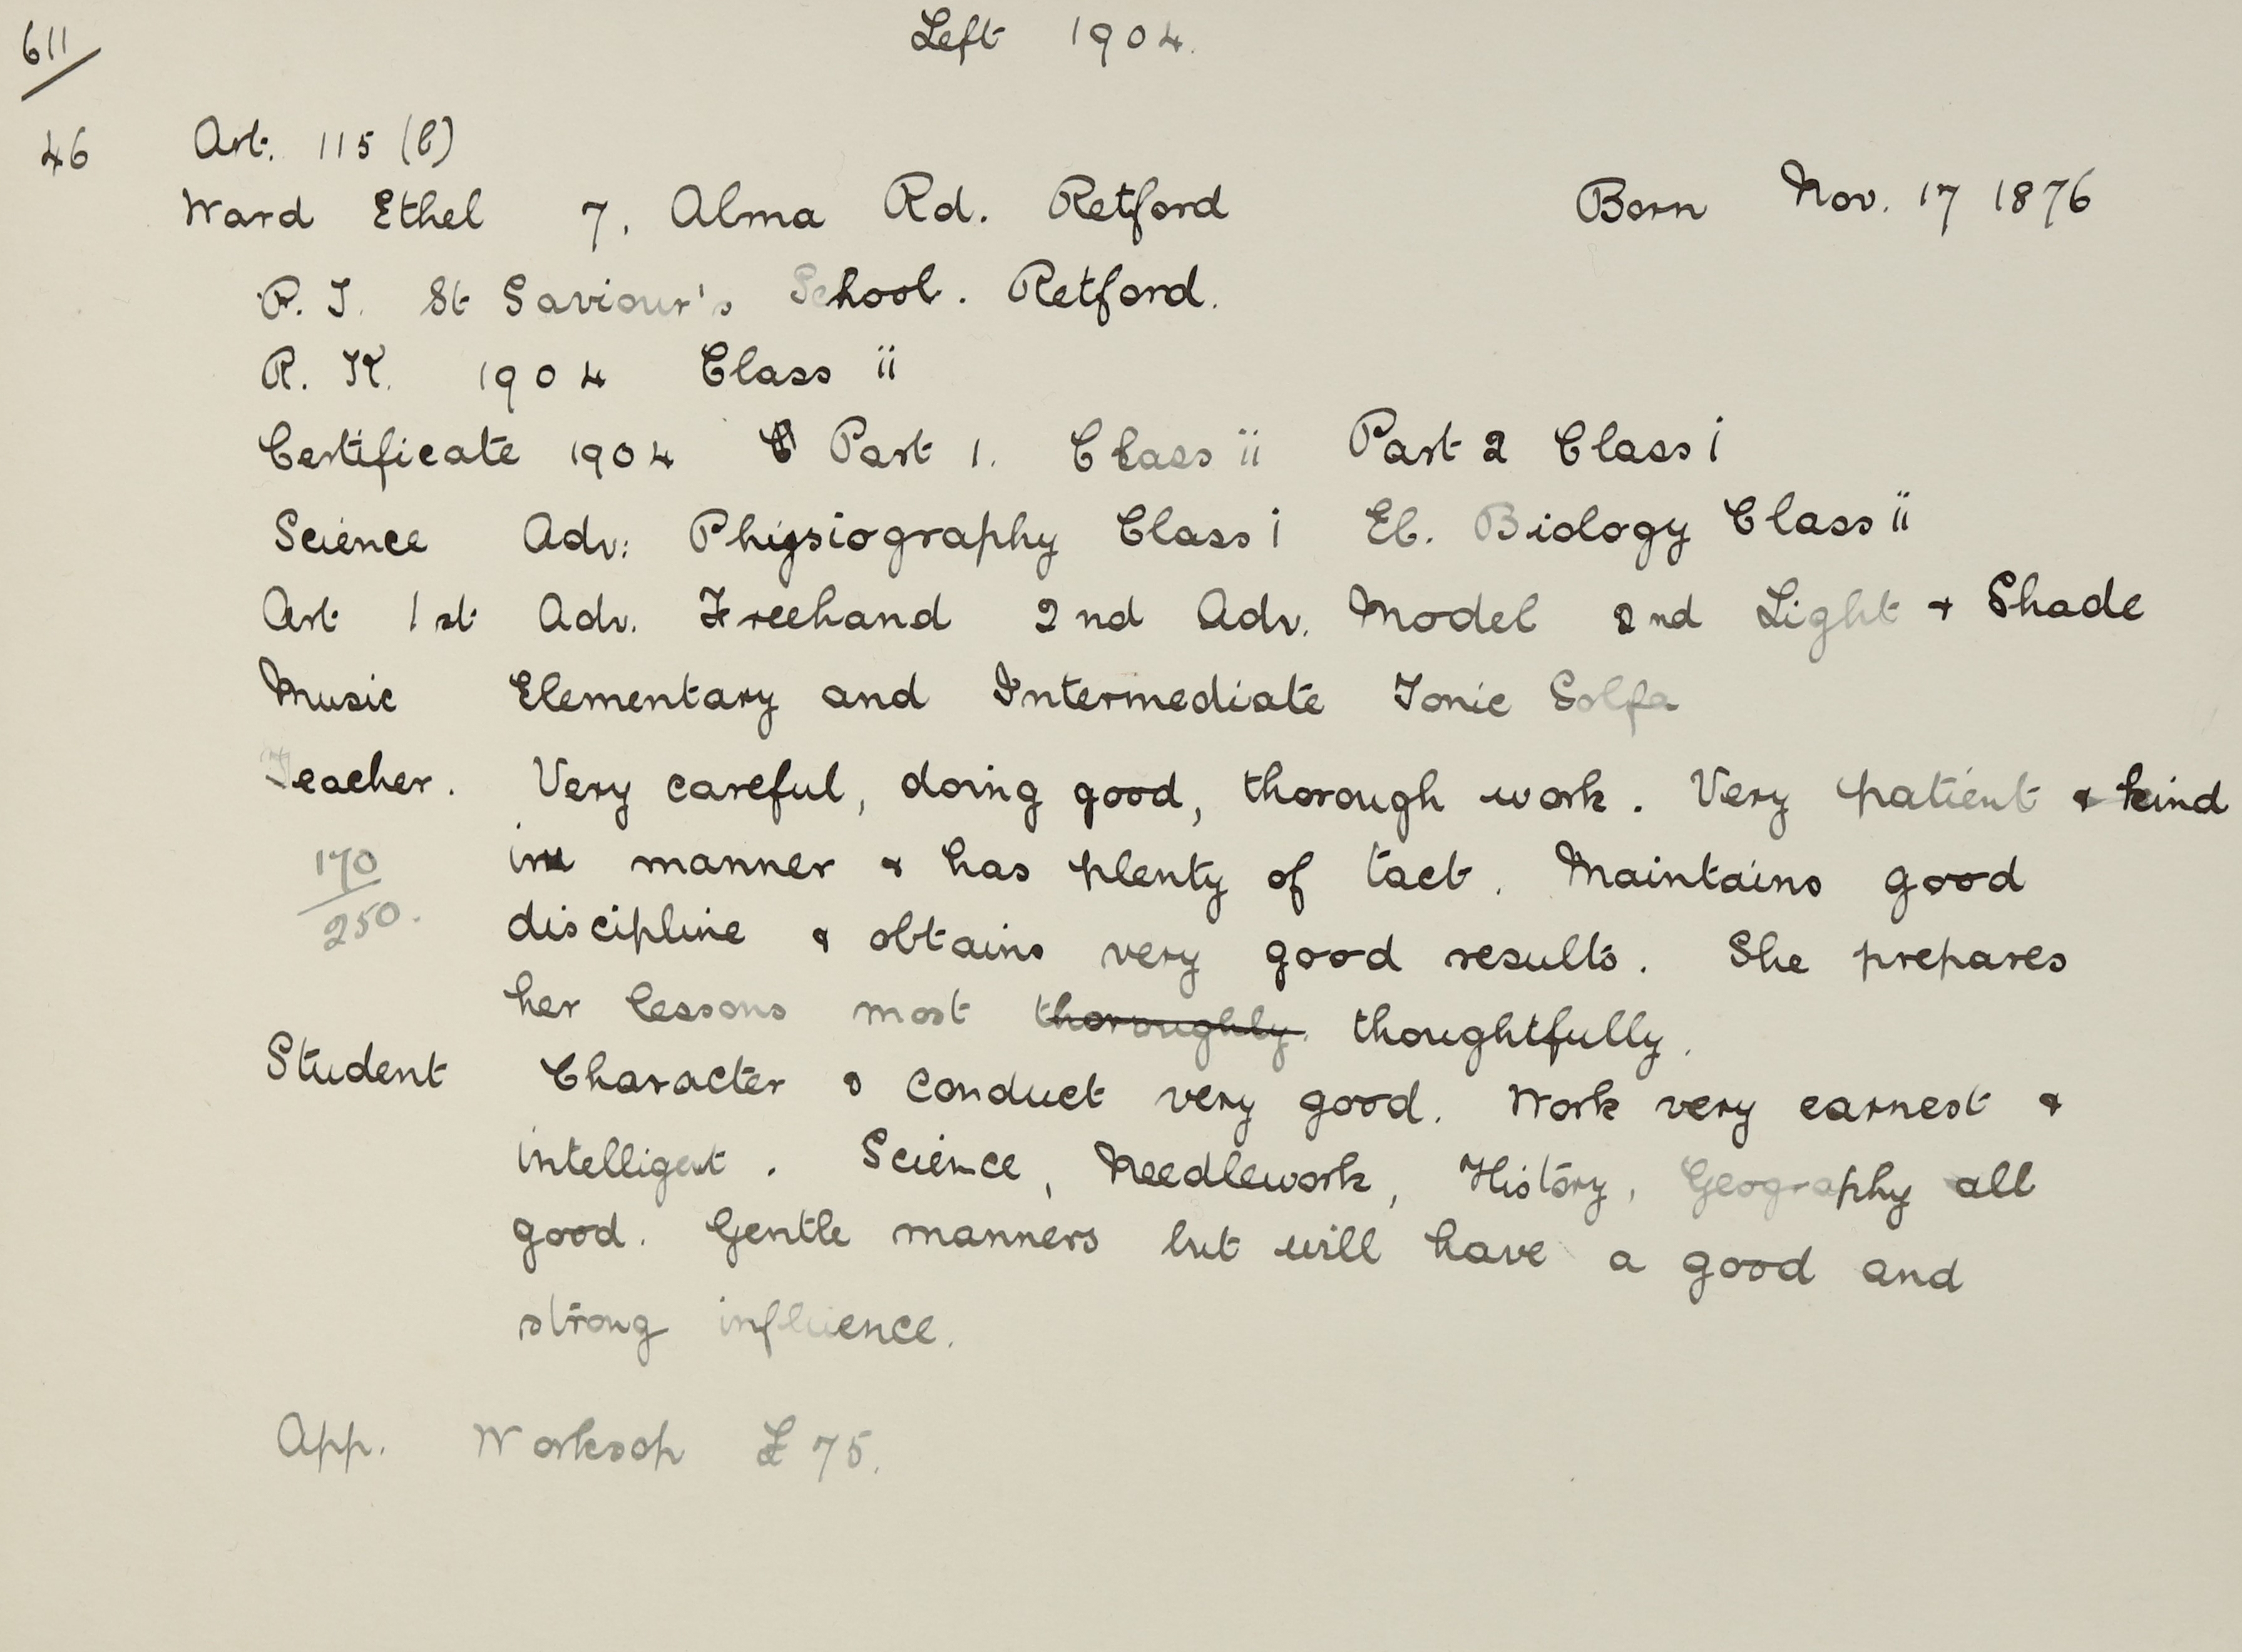 611
Left 1904.
46
Art. 115 (b)
Ward Ethel 7, Alma Rd. Retford Born Nov. 17 1876
P.T. St Saviour's School. Retford.
R.K. 1904 Class ii
Certificate 1904 Part 1. Class ii Part 2 Class i
Science Adv: Physiography Class i El. Biology Class ii
Art 1st Adv. Freehand 2nd Adv. Model 2nd Light & Shade
Music Elementary and Intermediate Tonic Solfa
Teacher. Very careful, doing good, thorough work. Very patient & kind
in manner & has plenty of tact. Maintains good
170/250.
discipline & obtains very good results. She prepares
her lessons most thoroughly. thoughtfully.
Student Character & conduct very good. Work very earnest &
intelligent. Science, Needlework, History, Geography all
good. Gentle manners but will have a good and
strong influence.
App. Worksop £75.